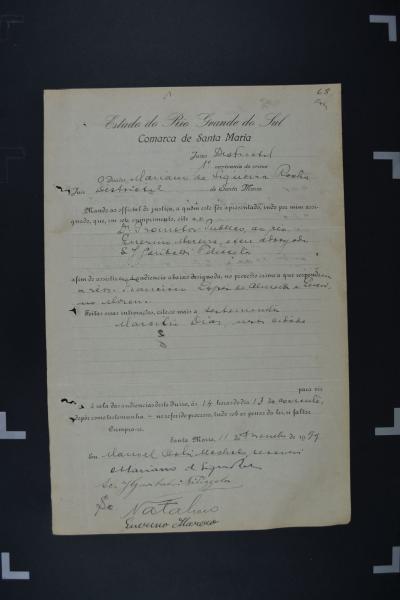 68
Estado do Rio Grande do Sul
Comarca de Santa Maria
Juizo Districtal
1º escrivania do crime
O Doutor Mariano de Siqueira Rocha
Juiz Districtal de Santa Maria
Mando ao official de justiça, a quem este fôr apresentado, indo por mim assi-
gnado, que, em seu cumprimento, cite a
Dr Promotor Publico, ao réo
Euerino Moreno, e seu advogado
afim de assistirem audiencia abaixo designada, no processo crime a que respondem
os réos Francisco Lopes de Almeida e Eueri-
no Moreno.
Feitas essas intimações, cite-se mais a testemunha
Marcilio Dias, nesta cidade
para vir
á sala das audiencias deste Juizo, ás 14 horas do dia 13 do corrente,
depôr como testemunha no referido processo, tudo sob as penas da lei, si faltar.
Cumpra-se.
Santa Maria, 11 de de 19
Eu, Manoel escrivão
Mariano de Siqueira
Natalicio
Euerino Moreno